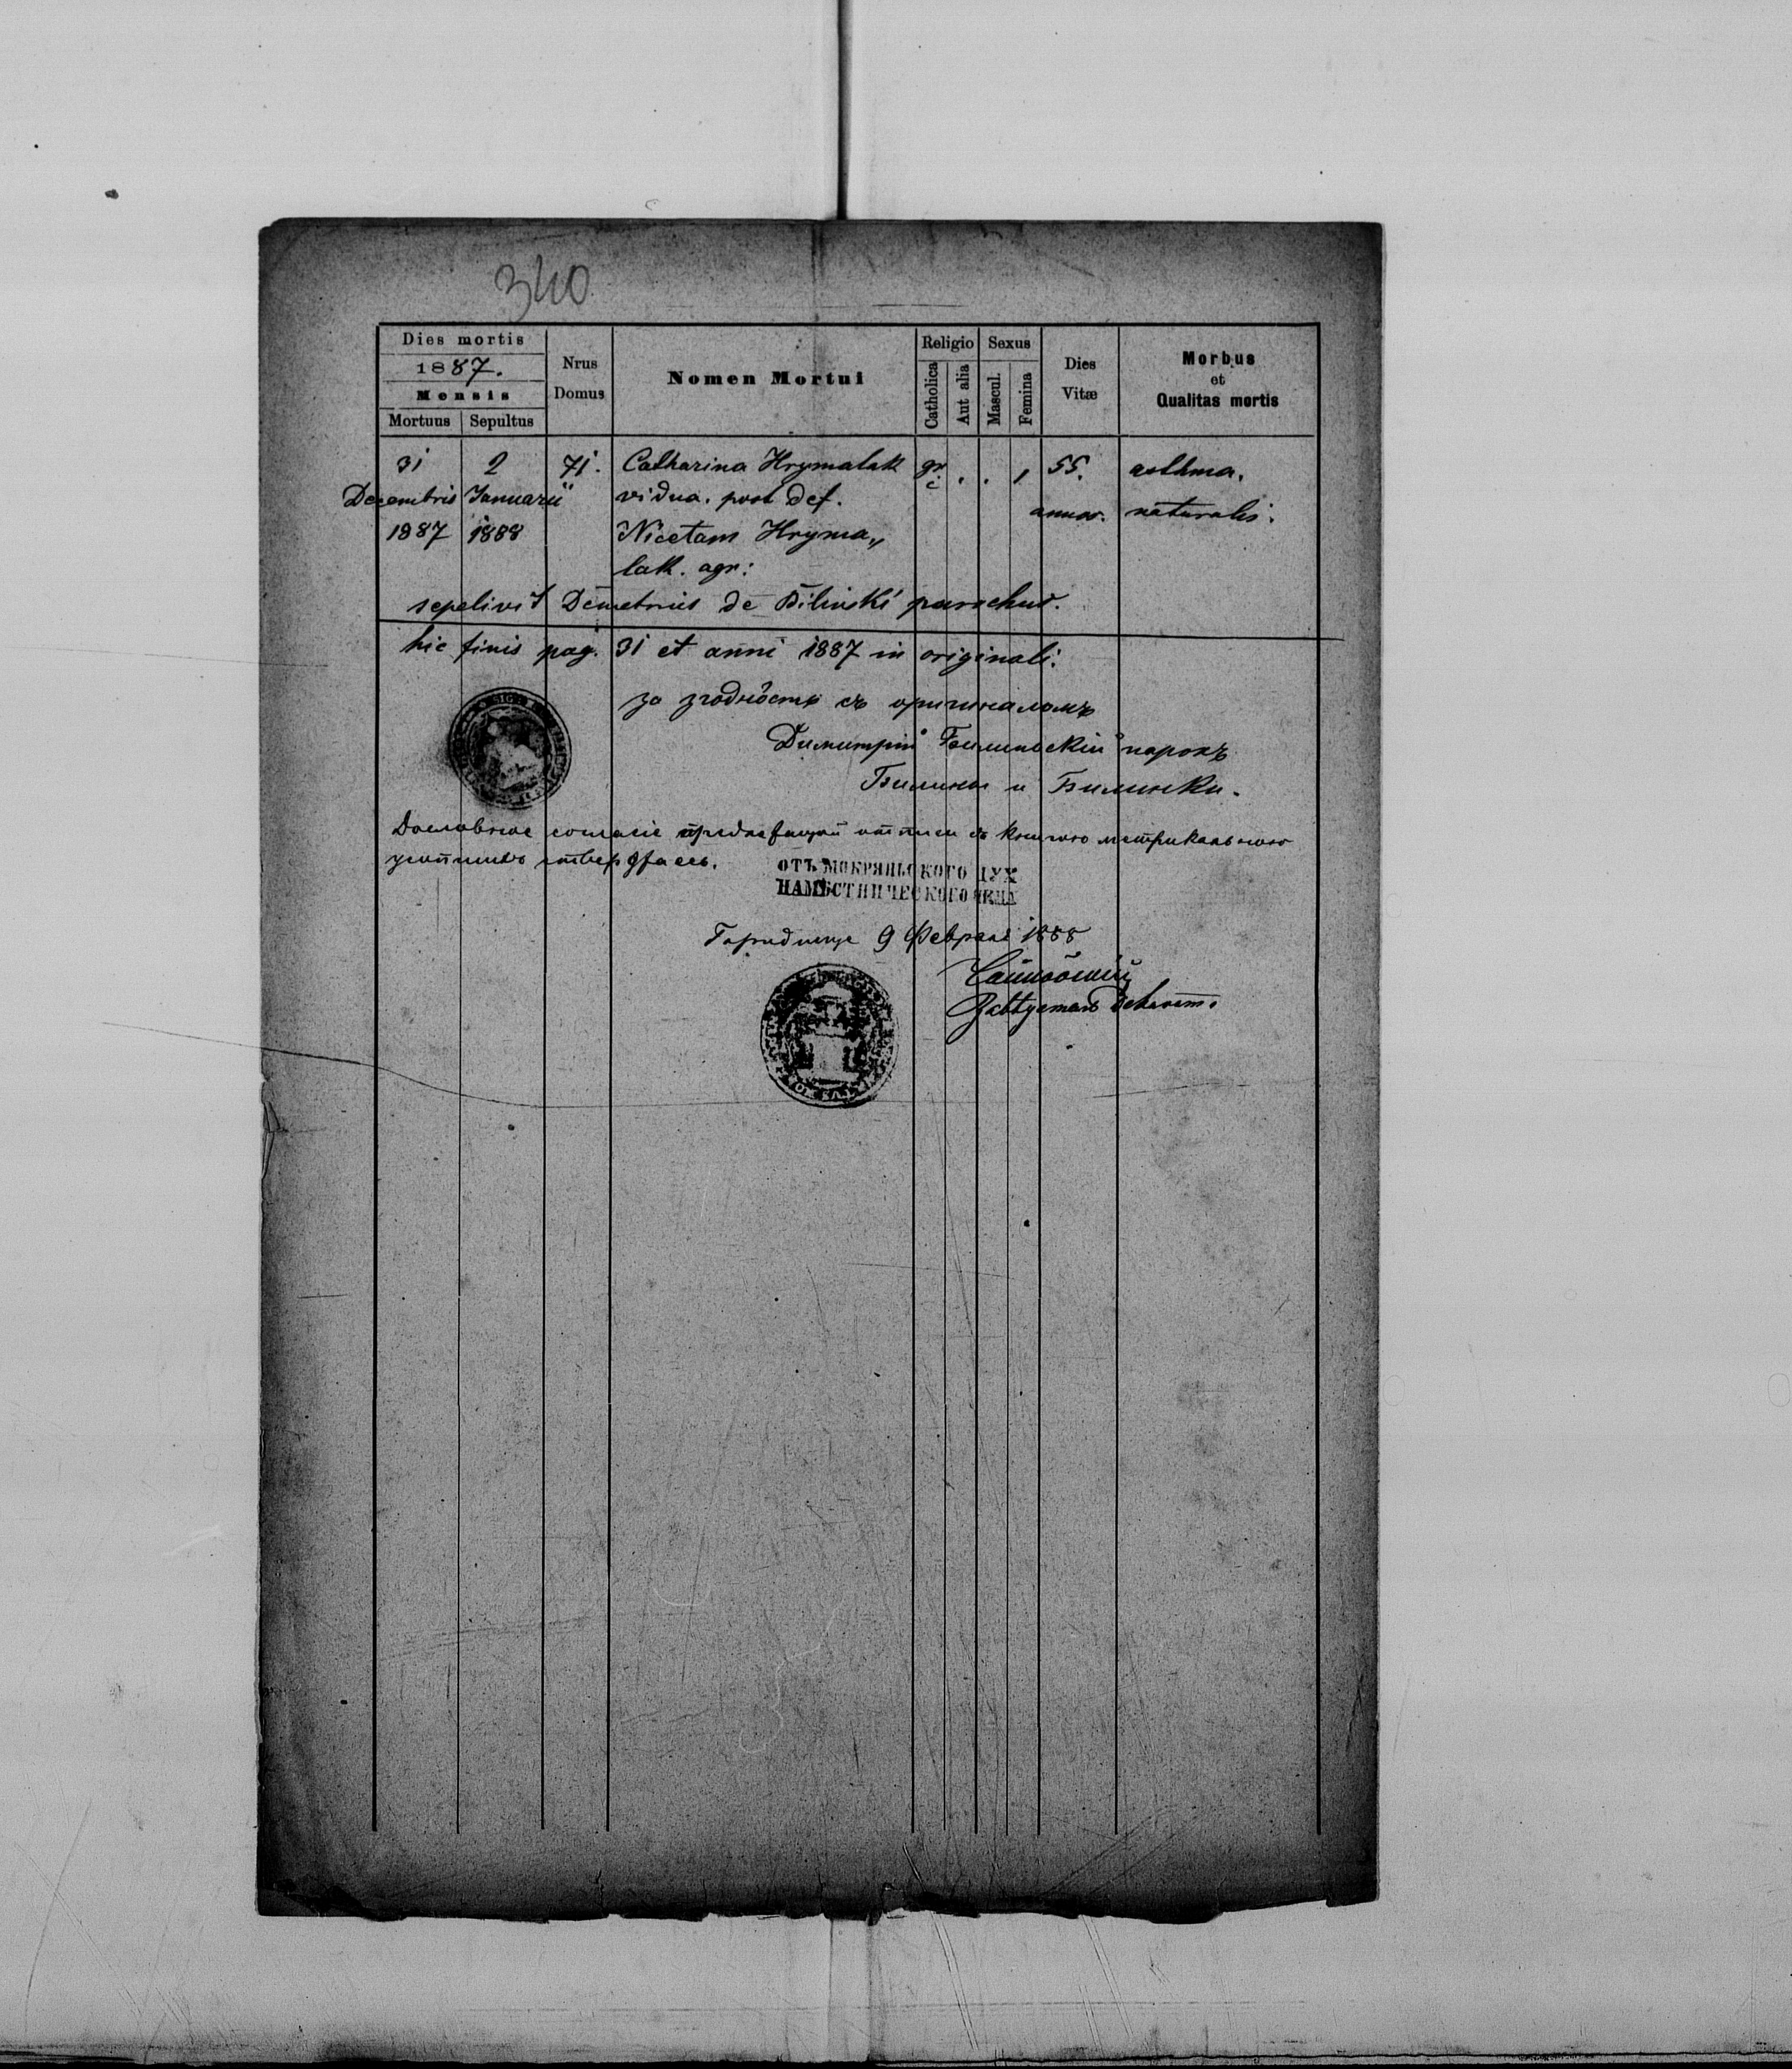 340
Dies mortis
1887.
Mensis
Mortuus Sepultus
Nrus Domus
Nomen Mortui
Religio
Catholica Aut alia
Sexus
Mascul. Femina
Dies Vitæ
Morbus
et
Qualitas mortis
31 2 71. Catharina Hrymalak gr. . . 1 55. asthma.
Decembris Januarii vidua. post def. c annor. naturalis.
1887 1888 Nicetam Hryma„
lak. agr:
sepelivit Demetrius de Biliński parochus.
hic finis pag. 31 et anni 1887 in originali.
за згодность съ оригиналомъ
Димитрій Билиньскій парохъ
Билины и Билинки.
Дословное согласіе предлежащой отписи съ книгою метрикальною
усопшихъ ствержаесь.
ОТЪ МОКРЯНЬСКОГО
НАМѢСТНИЧЕСКОГО
9 Февраля 1888